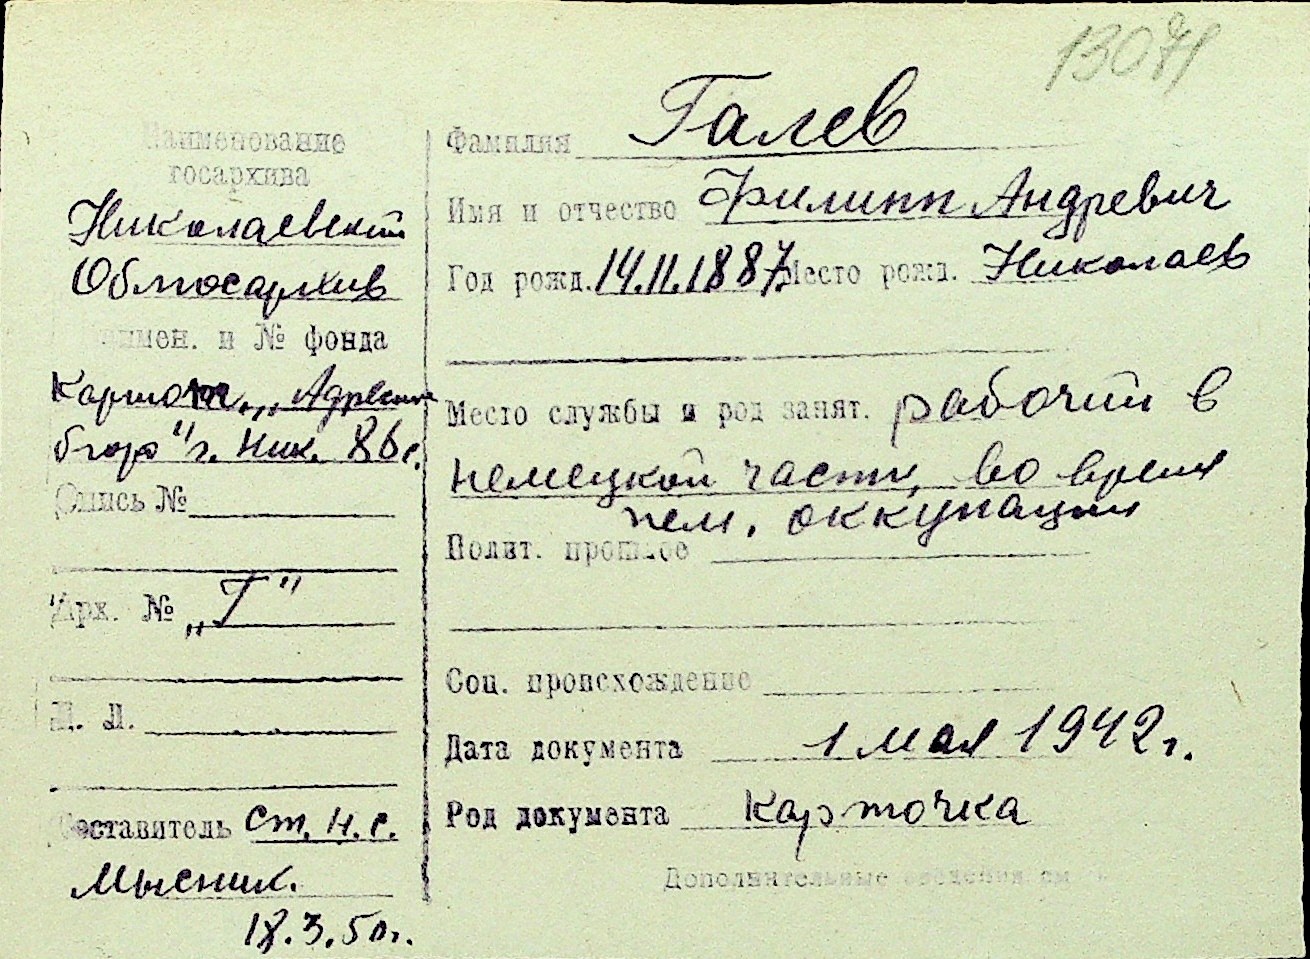 13071
Наименование
госархива
Николаевский
Облгосархив
Наимен. и № фонда
Картот. „Адресное
бюро" г. Ник. 86 с.
Опись №
Арх. № „Г"
Л. Л.
Составитель ст. н. с.
Мысник.
18.3.50г.
Фамилия Галев
Имя и отчество Филипп Андревич
Год рожд. 14.11.1887 Место рожд. Николаев
Место службы и род занят. рабочий в
немецкой части, во время
нем. оккупации
Полит. прошлое
Соц. происхождение
Дата документа 1 мая 1942 г.
Род документа Карточка
Дополнительные сведения см